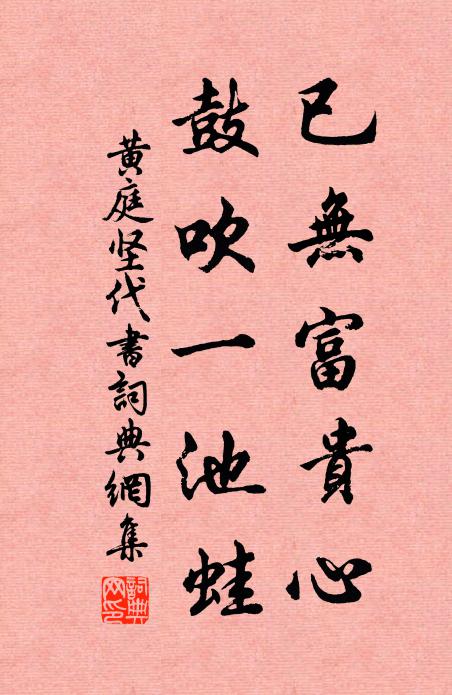 已無富貴心
鼓吹一池蛙
黃庭坚代書詞典網集
詞典網印